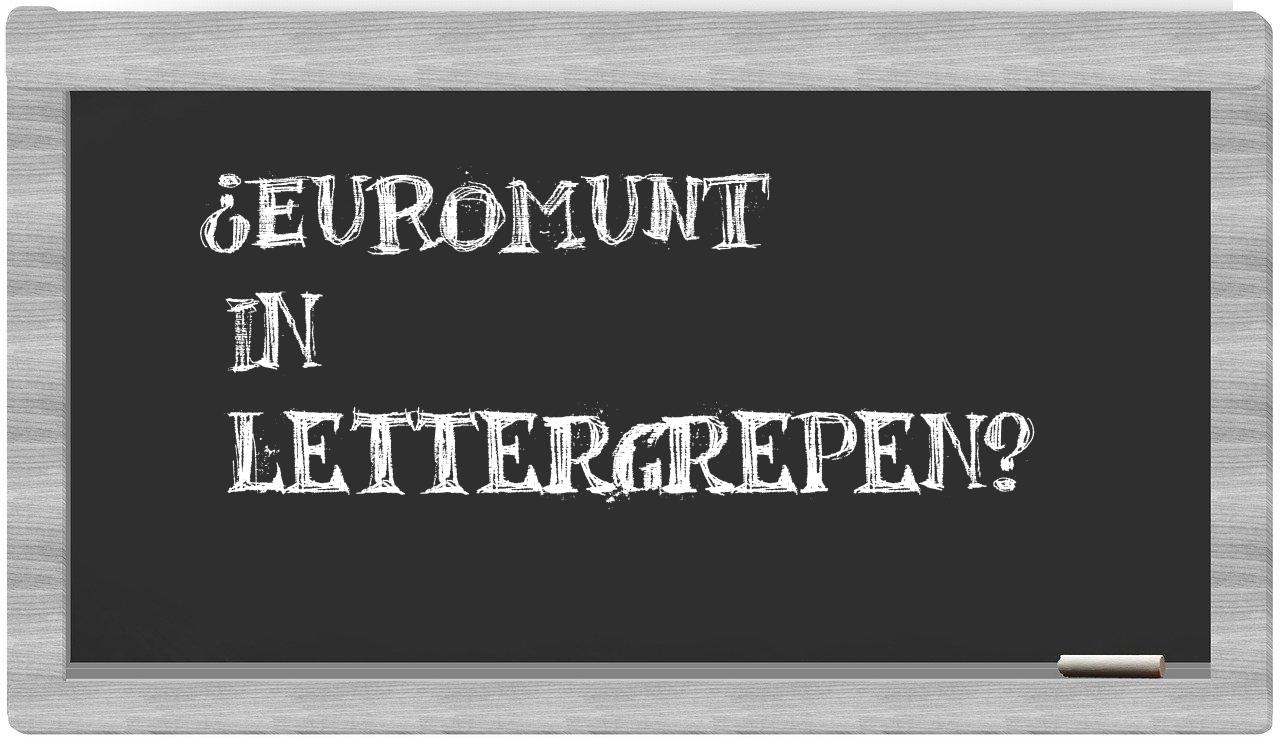 ¿EUROMUNT
IN
LETTERGREPEN?